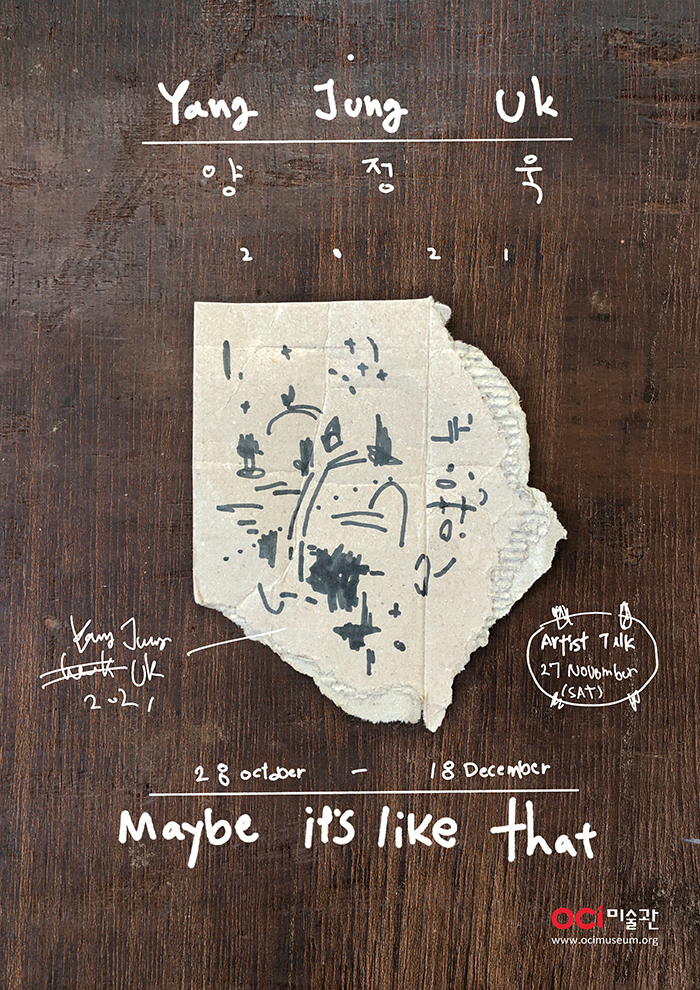 Yang Jung Uk
양 정 욱
2 0 2 1
Yang Jung
Uk
2021
Artist Talk
27 November
(SAT)
28 October - 18 December
Maybe it's like that
OCI미술관
www.ocimuseum.org